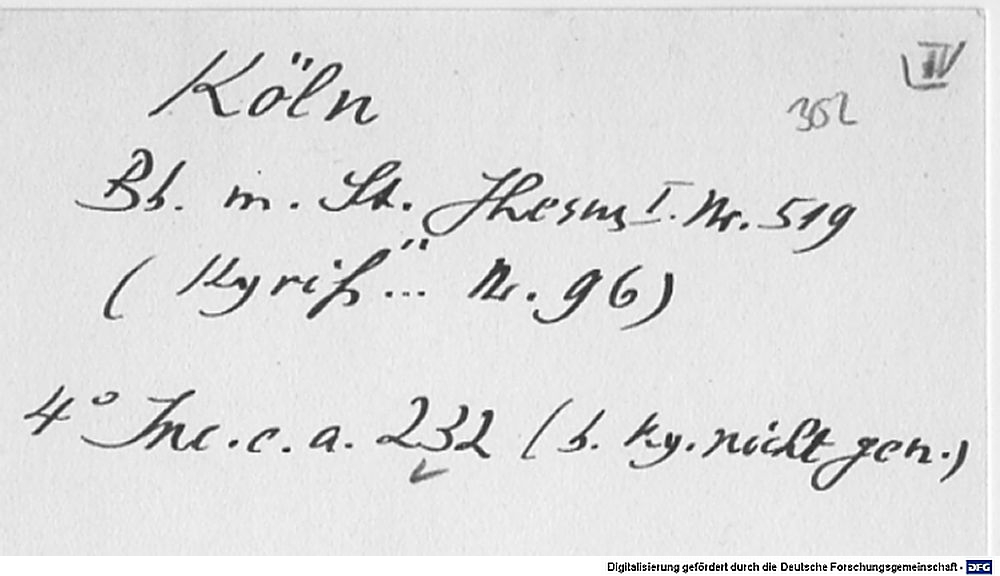 IV
Köln
352
Bb. m. St. Jhesus I. Nr. 519
(Kyriß... Nr. 96)
4° Inc. c. a. 232 (b. Ky. nicht gen.)
Digitalisierung gefördert durch die Deutsche Forschungsgemeinschaft - DFG